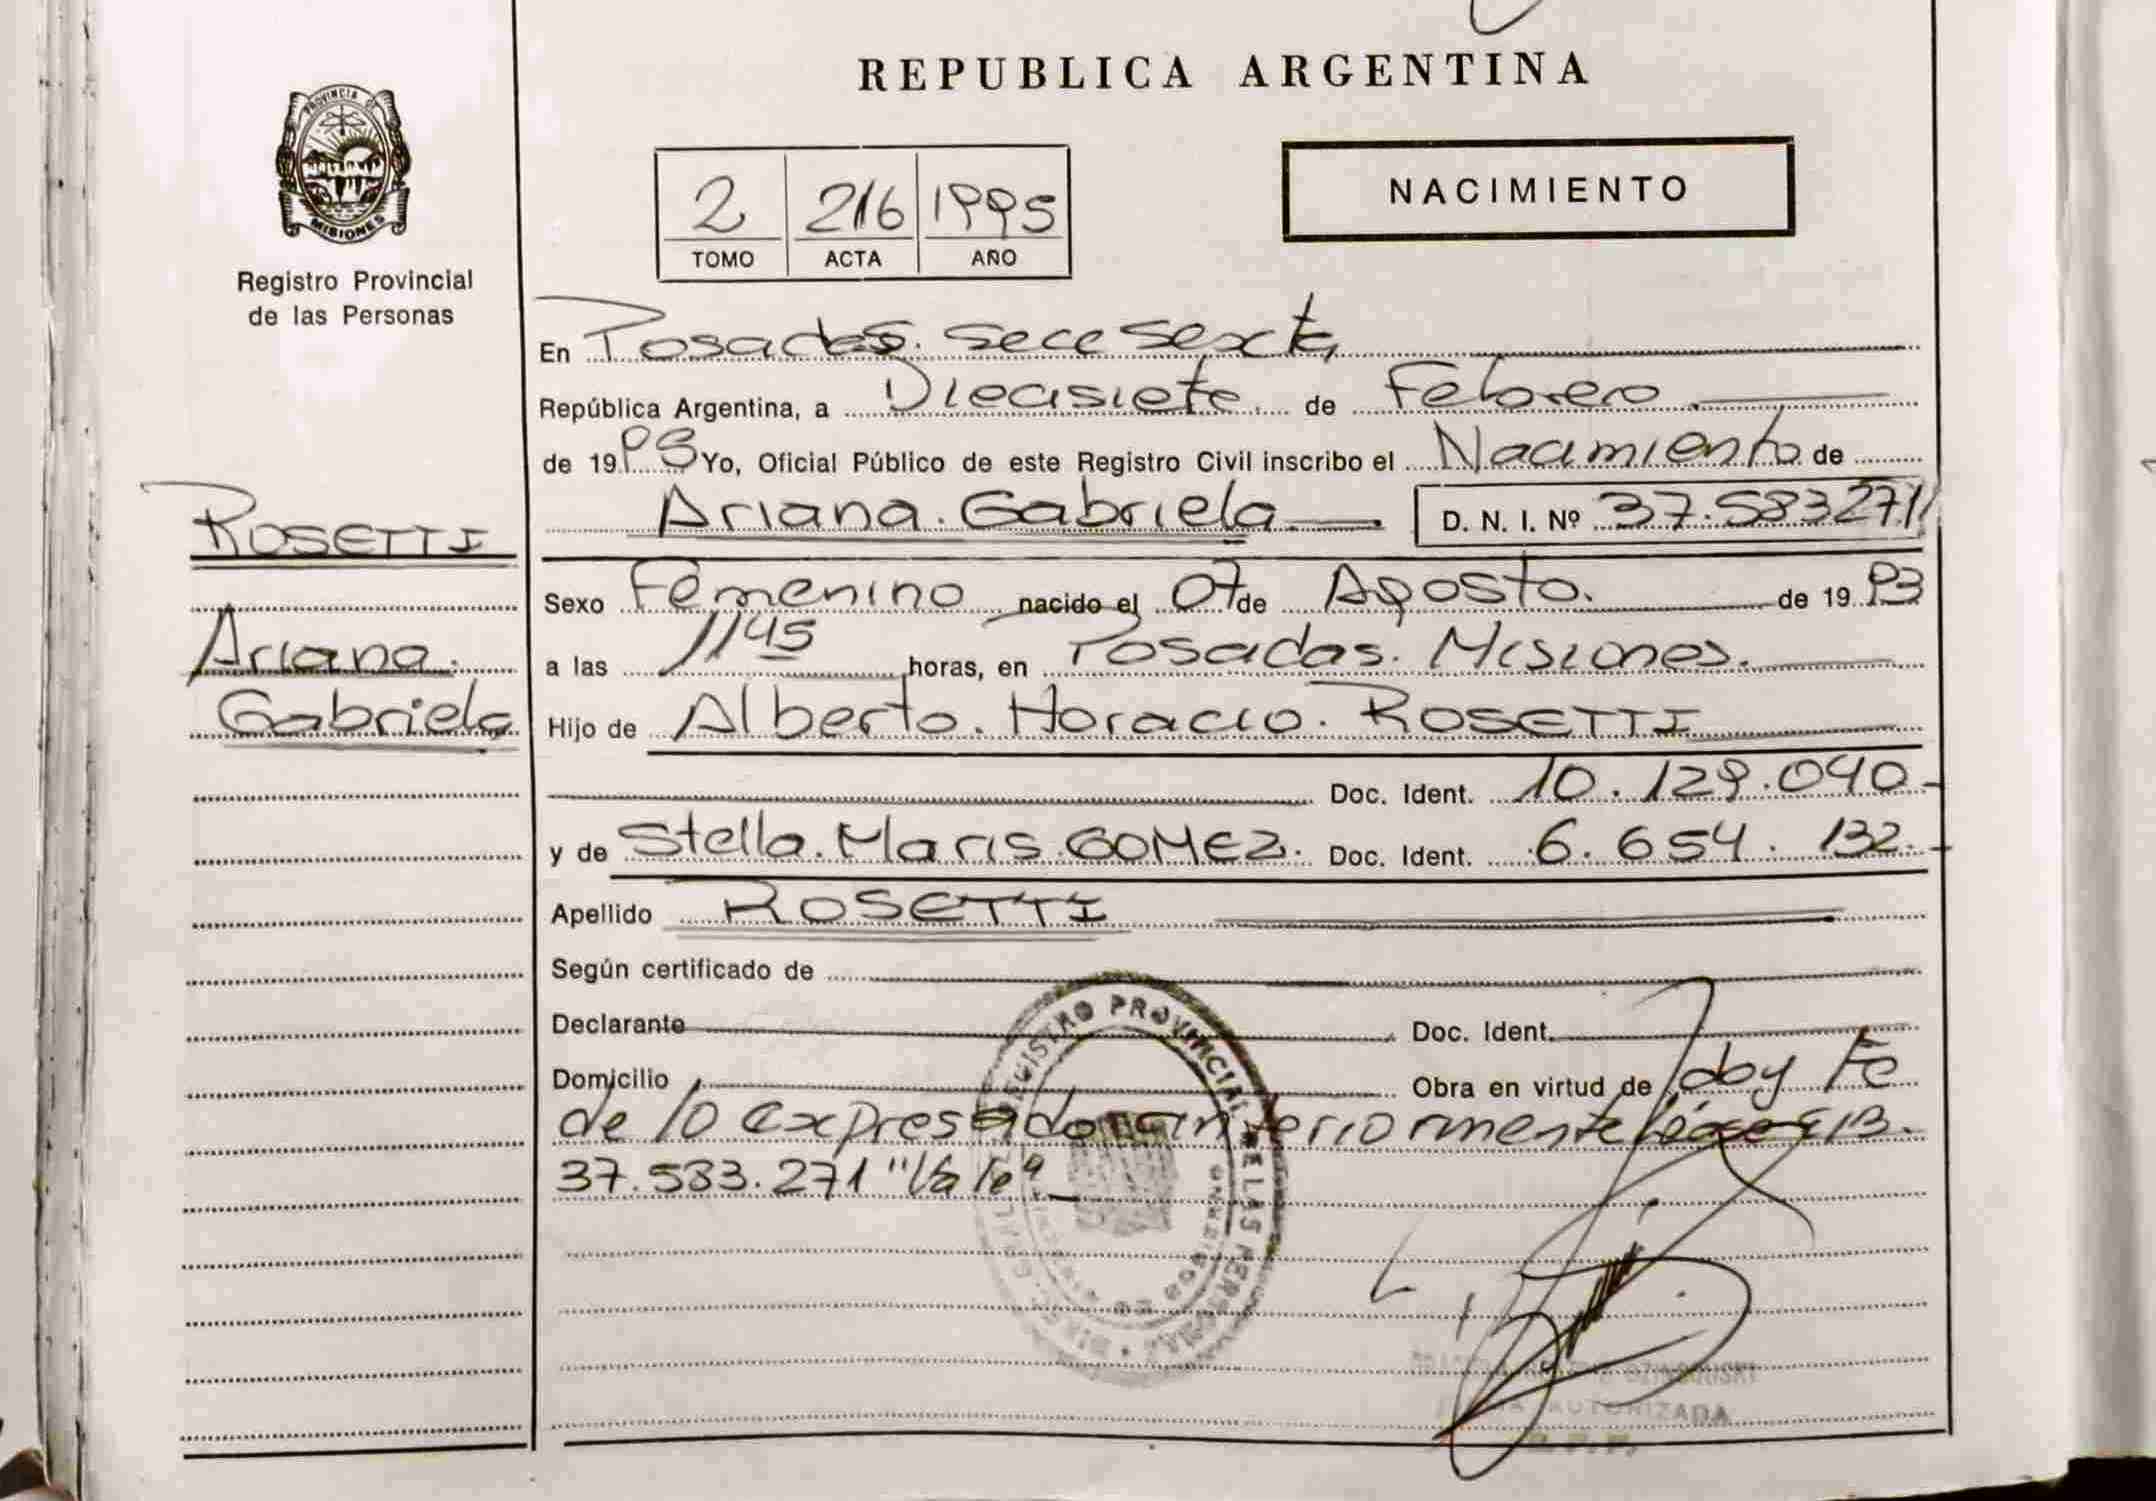 REPUBLICA ARGENTINA
PROVINCIA DE
MISIONES
Registro Provincial
de las Personas
2 216 1995
TOMO ACTA AÑO
NACIMIENTO
En Posadas. Secc Sexta
República Argentina, a Diecisiete. de Febrero.
de 1995 Yo, Oficial Público de este Registro Civil inscribo el Nacimiento de
Ariana. Gabriela D. N. I. Nº 37.583271
ROSETTI
Ariana.
Gabriela
Sexo Femenino nacido el 07 de Agosto. de 1993
a las 1145 horas, en Posadas. Misiones.
Hijo de Alberto. Horacio. ROSETTI
Doc. Ident. 10.129.040-
y de Stella. Maris. GOMEZ. Doc. Ident. 6.654.132.-
Apellido ROSETTI
Según certificado de
Declarante Doc. Ident.
Domicilio Obra en virtud de doy Fe
de lo expresado anteriormente
37.583.271 "Vale"
REGISTRO PROVINCIAL DE LAS PERSONAS
AUTORIZADA
R.P.P.